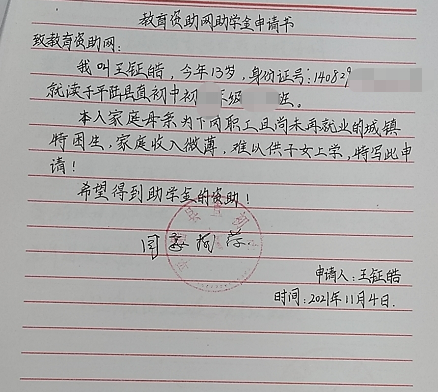 教育资助网助学金申请书
致教育资助网:
我叫王钲皓,今年13岁,身份证号:140829
就读于平陆县直初中初 年级 班。
本人家庭母亲为下岗职工且尚未再就业的城镇
特困生,家庭收入微薄,难以供子女上学,特写此申
请!
希望得到助学金的资助!
同意
申请人:王钲皓
时间:2021年11月4日.